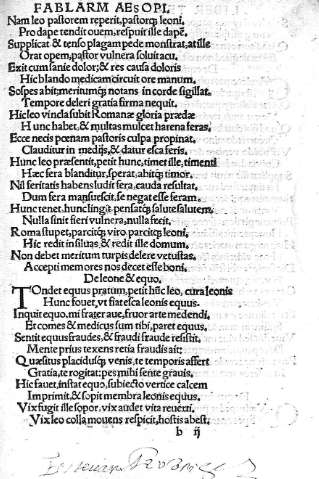 FABLARM AESOPI.
Nam leo pastorem reperit, pastorq; leoni.
Pro dape tendit ouem, respuit ille dapẽ.
Supplicat & tenso plagam pede monstrat, at ille
Orat opem, pastor vulnera soluit acu.
Exit cum sanie dolor, & res causa doloris
Hic blando medicam circuit ore manum.
Sospes abit, meritumq; notans in corde sigillat.
Tempore deleri gratia firma nequit.
Hic leo vincla subit Romanæ gloria prædæ
Hunc habet, & multas mulcet harena feras,
Ecce necis pœnam pastoris culpa propinat,
Clauditur in medijs, & datur esca feris.
Hunc leo præsentit, petit hunc, timet ille, timenti
Hæc fera blanditur, sperat, abitq; timor.
Nil feritatis habens ludit fera, cauda resultat.
Dum fera mansuescit, se negat esse feram.
Hunc tenet, hunc lingit, pensatq; salute salutem.
Nulla sinit fieri vulnera, nulla fecit.
Roma stupet, parcitq; viro parcitq; leoni,
Hic redit in siluas, & redit ille domum.
Non debet meritum turpis delere vetustas.
Accepti memores nos decet esse boni.
De leone & equo.
TOndet equus pratum, petit hũc leo, cura leonis
Hunc fouet, vt fiat esca leonis equus.
Inquit equo, mi frater aue, fruor arte medendi,
Et comes & medicus sum tibi, paret equus,
Sentit equus fraudes, & fraudi fraude resistit.
Mente prius texens retia fraudis ait:
Quæsitus placidusq; venis, te temporis affert
Gratia, te rogitat: pes mihi sente grauis.
Hic fauet, instat equo, subiecto vertice calcem
Imprimit, & sopit membra leonis equus.
Vix fugit ille sopor, vix audet vita reuerti.
Vix leo colla mouens respicit, hostis abest.
b ij